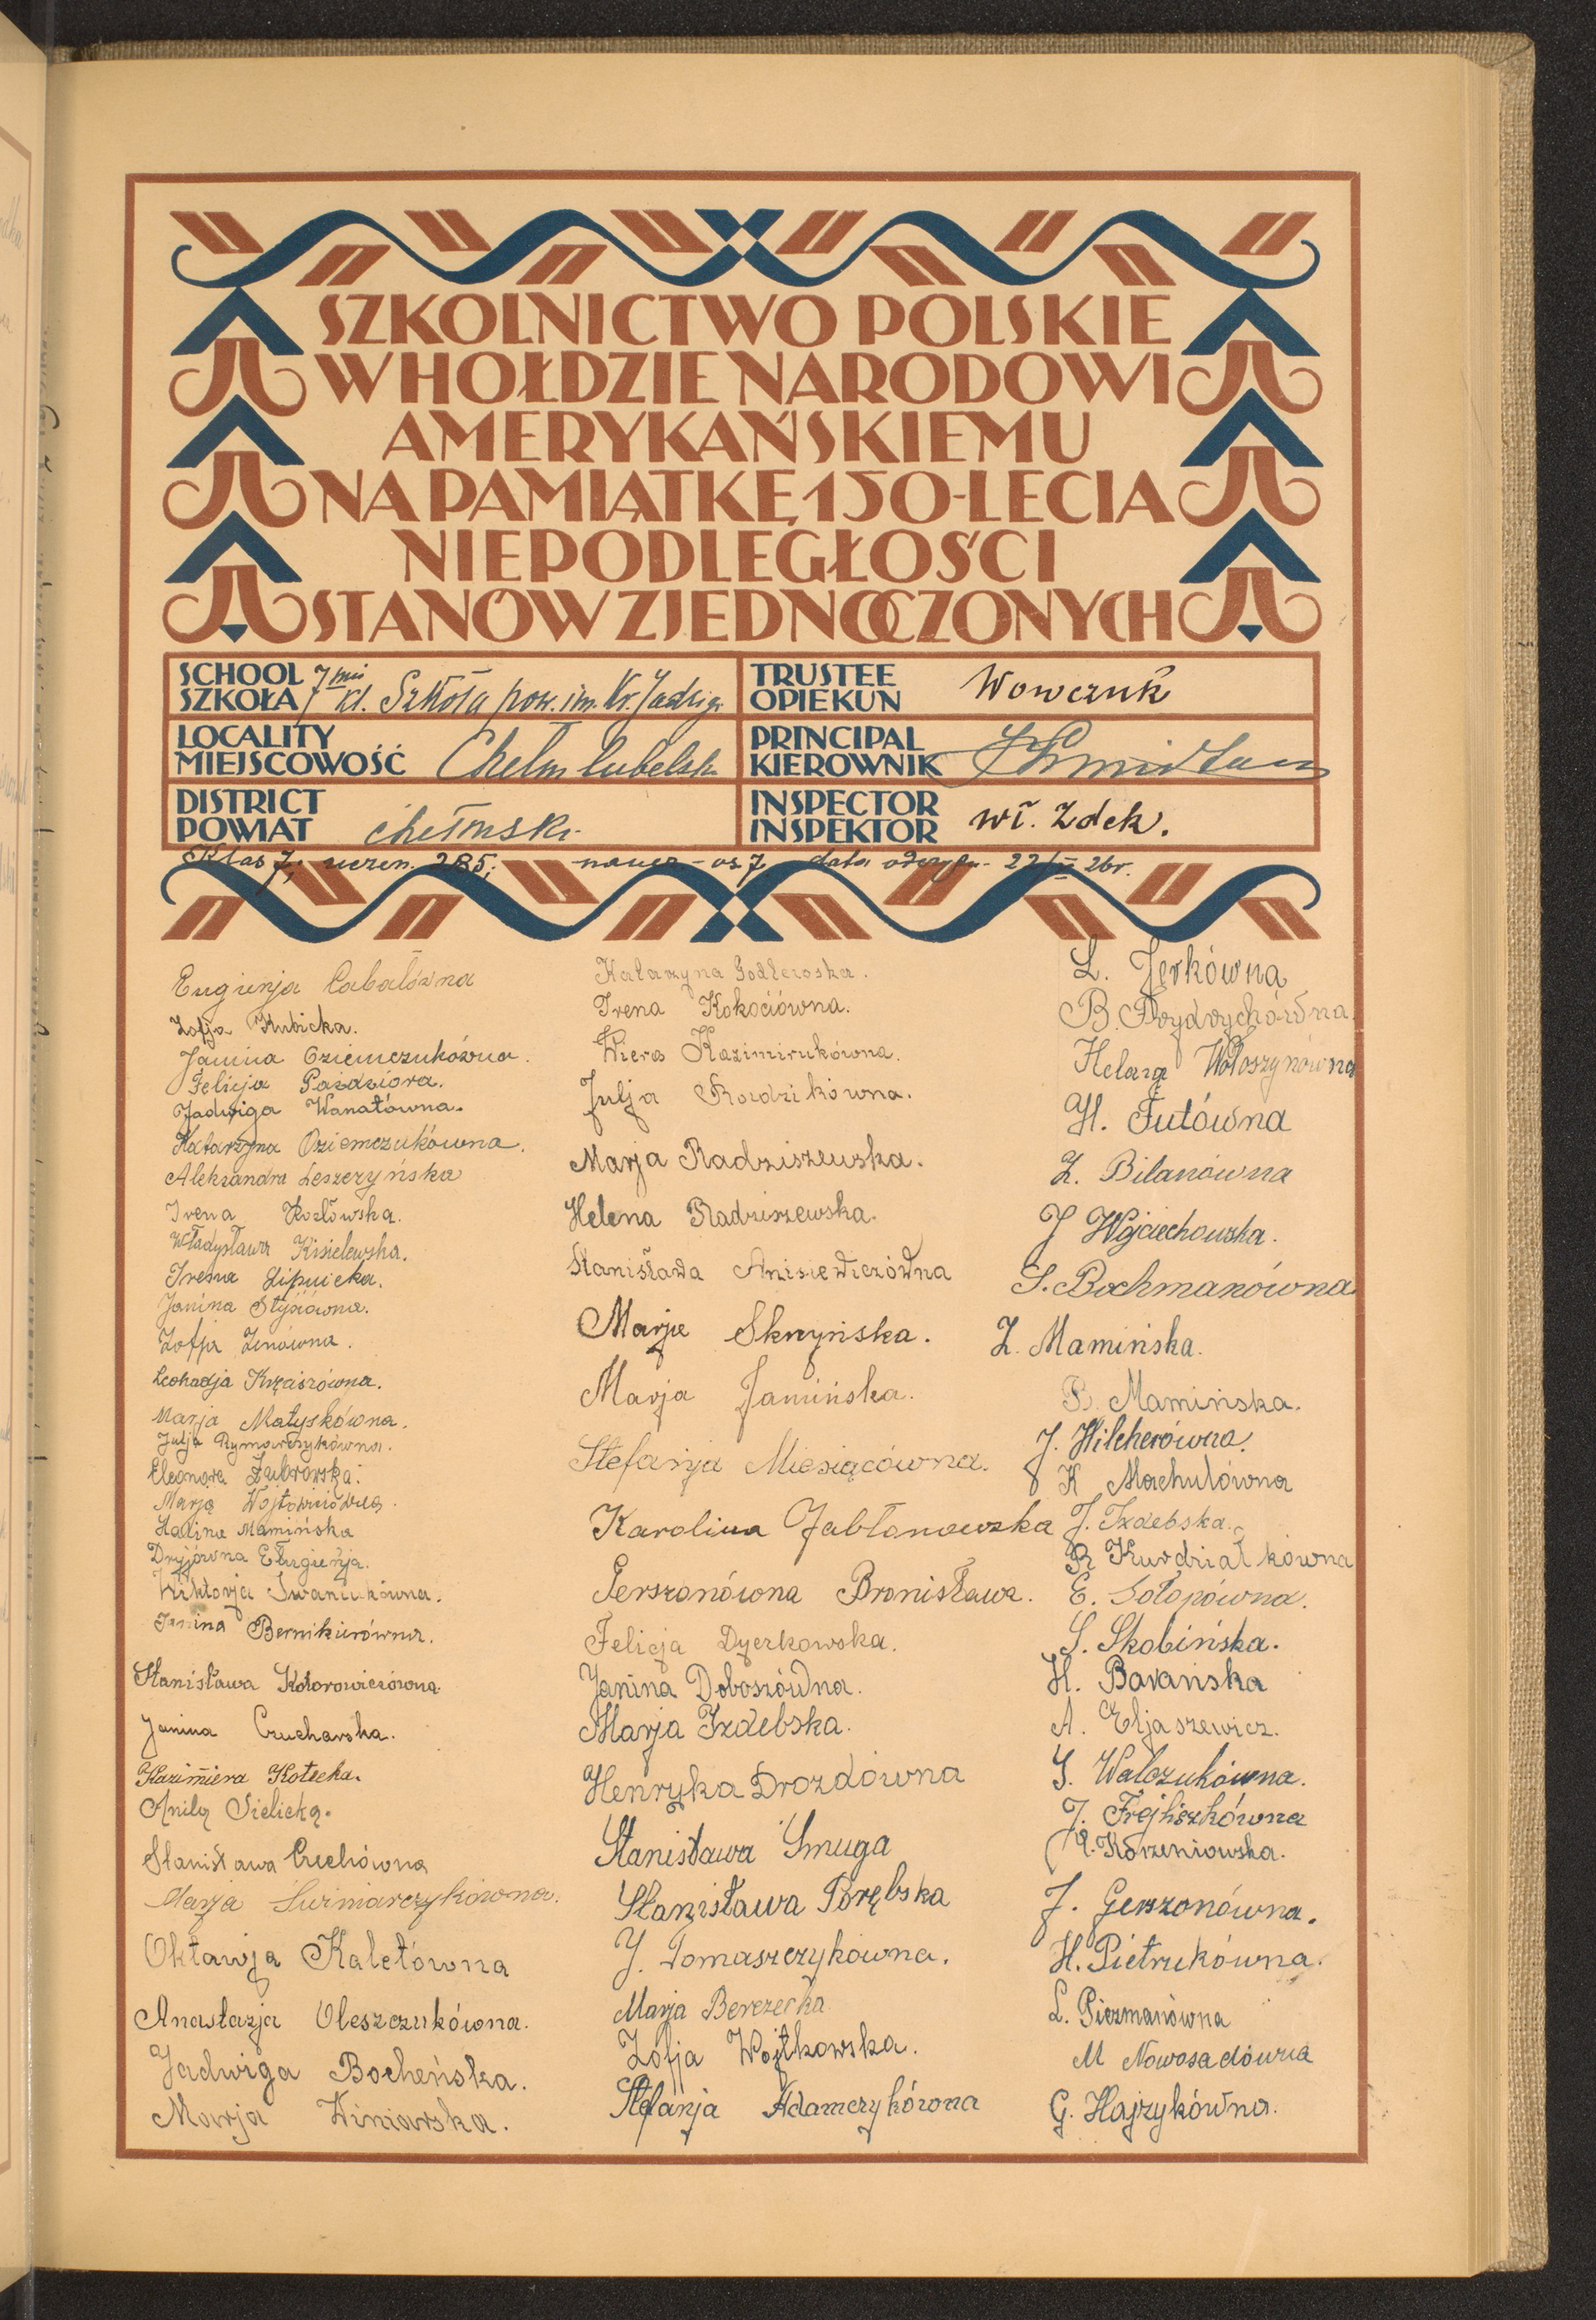 SZKOLNICTWO POLSKIE
W HOŁDZIE NARODOWI
AMERYKAŃSKIEMU
NA PAMIĄTKĘ 150-LECIA
NIEPODLEGŁOŚCI
STANÓW ZJEDNOCZONYCH
SCHOOL
SZKOŁA 7mio kl. Szkoła pow. im. Kr. Jadwigi
TRUSTEE
OPIEKUN Wowczuk
LOCALITY
MIEJSCOWOŚĆ Chełm lubelsk.
PRINCIPAL
KIEROWNIK
DISTRICT
POWIAT chełmski
INSPECTOR
INSPEKTOR Wł. Zdek.
Klas 7; uczen. 285; naucz-os 7. data 22/II 26r.
Eugienja Cabalówna
Zofja Kubicka.
Janina Oziemczukówna.
Felicja Paździora.
Jadwiga Wanatówna.
Katarzyna Oziemczukówna.
Aleksandra Leszczyńska
Irena Kozłowska.
Władysława Kisielewska.
Irena Lipnicka.
Janina Stysiówna.
Zofja Zinówna.
Leokadja Krzciszówna.
Marja Matyskówna.
Julja Rymarczykówna.
Eleonora Żubrowska.
Marja Wojtowiczówna.
Halina Mamińska
Dryjówna Eługienja.
Wiktorja Iwaniukówna.
Janina Bernikierówna.
Stanisława Kotorowiczówna.
Janina Czucharska.
Kazimiera Kotecka.
Anila Sielicka.
Stanisława Czechówna
Marja Świniarczykówna.
Oktawja Kaletówna
Anastazja Oleszczukówna.
Jadwiga Bocheńska.
Marja Winiarska.
Katarzyna Godlewska.
Irena Kokociówna.
Wiera Kazimirukówna.
Julja Rowdzikówna.
Marja Radziszewska.
Helena Radziszewska.
Stanisława Anisiewiczówna
Marje Skrzyńska.
Marja Jamińska.
Stefanja Miesiącówna.
Karolina Jabłonowska
Gerszonówna Bronisława.
Felicja Dyczkowska.
Janina Doboszówna.
Marja Izdebska.
Henryka Drozdówna
Stanisława Smuga
Stanisława Porębska
J. Tomaszczykówna.
Marja Berezecka
Zofja Wojtkowska.
Stefanja Adamczykówna
L. Jerkówna
B. Frydrychówna.
Helena Wołoszynówna
H. Futówna
Z. Bilanówna
J Wojciechowska.
S. Bochmanówna
Z. Mamińska.
B. Mamińska.
J. Hilcherówna.
K Machulówna
J. Izdebska.
R Kurdziałkówna
E. Sołopówna.
S. Skobińska.
H. Barańska
A. Eljaszewicz.
S. Walczukówna.
J. Frejliszkówna
A. Korzeniowska.
J. Gerszonówna.
H. Pietrukówna.
L. Piczmanówna
M Nowosadówna
G. Hajzykówna.